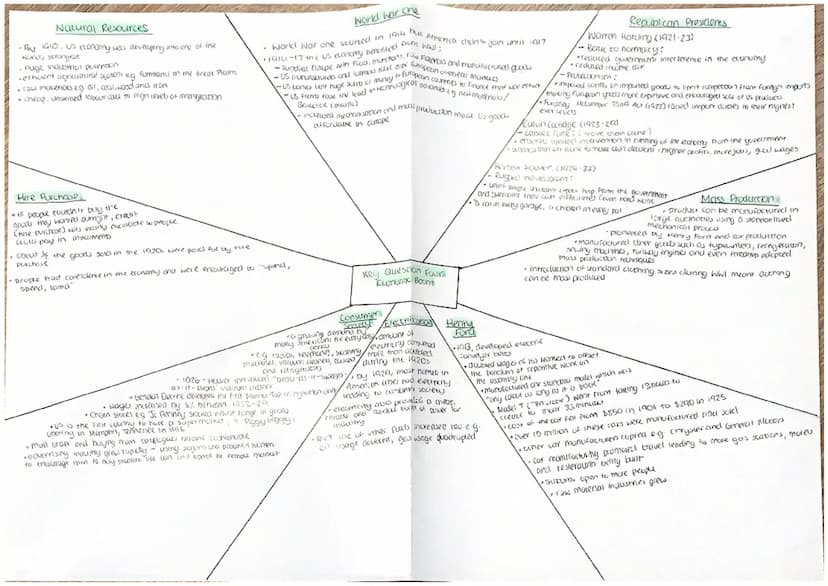 Natural Resources
• By 1910, US economy was developing into one of the
worlds strongest
• huge industrial potential
• efficient agricultural system e.g. farmland in the Great Plains
• raw materials e.g. oil, coal, wood and iron
• cheap, unskilled labour due to high levels of immigration
World War One
• World War one started in 1914 but America didn't join until 1917
• 1914-17 the US economy benefited from WW1:
- supplied Europe with food, munitions, raw materials and manufactured goods
- US manufacturers and farmers took over European overseas markets
- US banks lent huge sums of money to European countries to finance their war effort
- US firms took the lead in technological advances e.g. new materials:
Bakelite (plastic)
• increased mechanisation and mass production meant US goods
affordable in Europe
Republican Presidents
Warren Harding (1921-23)
- Back to normalcy:
• reduced government interference in the economy
• reduced income tax
- Protectionism:
• imposed tariffs on imported goods to limit competition from foreign imports
making European goods more expensive and encouraged sale of US products
• Fordney McCumber Tariff Act (1922) raised import duties to their highest
ever levels
Calvin Coolidge (1923-29)
- Laissez Faire: (leave them alone)
• ensured limited intervention in running of the economy from the government
• businessmen left alone to make own decisions: higher profits, more jobs, good wages
Herbert Hoover (1929-33)
- Rugged Individualism:
• belief people shouldn't expect help from the government
and overcome their own difficulties from hard work
"a car in every garage, a chicken in every pot"
Hire Purchase
• if people couldn't buy the
goods they wanted outright, credit
(hire purchase) was easily available so people
could pay in instalments
• goods sold in the 1920s were paid for by hire
purchase
• people had confidence in the economy and were encouraged to "spend,
spend, spend"
Mass Production
• product can be manufactured in
large quantities using a standardised
mechanical process
• pioneered by Henry Ford and car production
• manufactured other goods such as typewriters, refrigerators,
sewing machines, railway engines and even firearms adopted
mass production techniques
• introduction of standard clothing sizes during WW1 meant clothing
can be mass produced
Key Question Four:
Economic Boom
Consumer
Society
• growing demand by
many Americans for everyday
goods
• e.g. radios, telephones, washing
machines, vacuum cleaners, cookers
and refrigerators
• 1926 - Hoover introduced
vacuum cleaner
• wages increased by 8% between 1923-29
• chain stores e.g. JC Penney selling entire range of goods
• US is the first country to have a supermarket, "Piggly Wiggly",
opening in Memphis, Tennessee in 1916
• mail order and buying from catalogues became fashionable
• advertising industry grew rapidly - using slogans and beautiful women
to encourage men to buy products
Electrification
• amount of
electricity consumed
more than doubled
during the 1920s
• by 1929, most homes in
American cities had electricity
leading to consumer society
• electricity also provided a cheap,
reliable and flexible form of power for
industry
• use of other fuels increase too e.g.
oil usage doubled, gas usage quadrupled
Henry
Ford
• 1913, developed electric
conveyor belts
• doubled wages of his workers to offset
the boredom of repetitive work on
the assembly line
• manufactured one standard model which was
"any colour as long as it is black"
• Model T ("Tin Lizzie") went from taking 13 hours to
create to 1 hour 33 minutes
• cost of the car fell from $850 in 1908 to $290 in 1925
• over 15 million of these cars were manufactured and sold
• other car manufacturers copied e.g. Chrysler and General Motors
• car manufacturing promoted travel leading to more gas stations, motels
and restaurants being built
• suburbs open to more people
• raw material industries grew